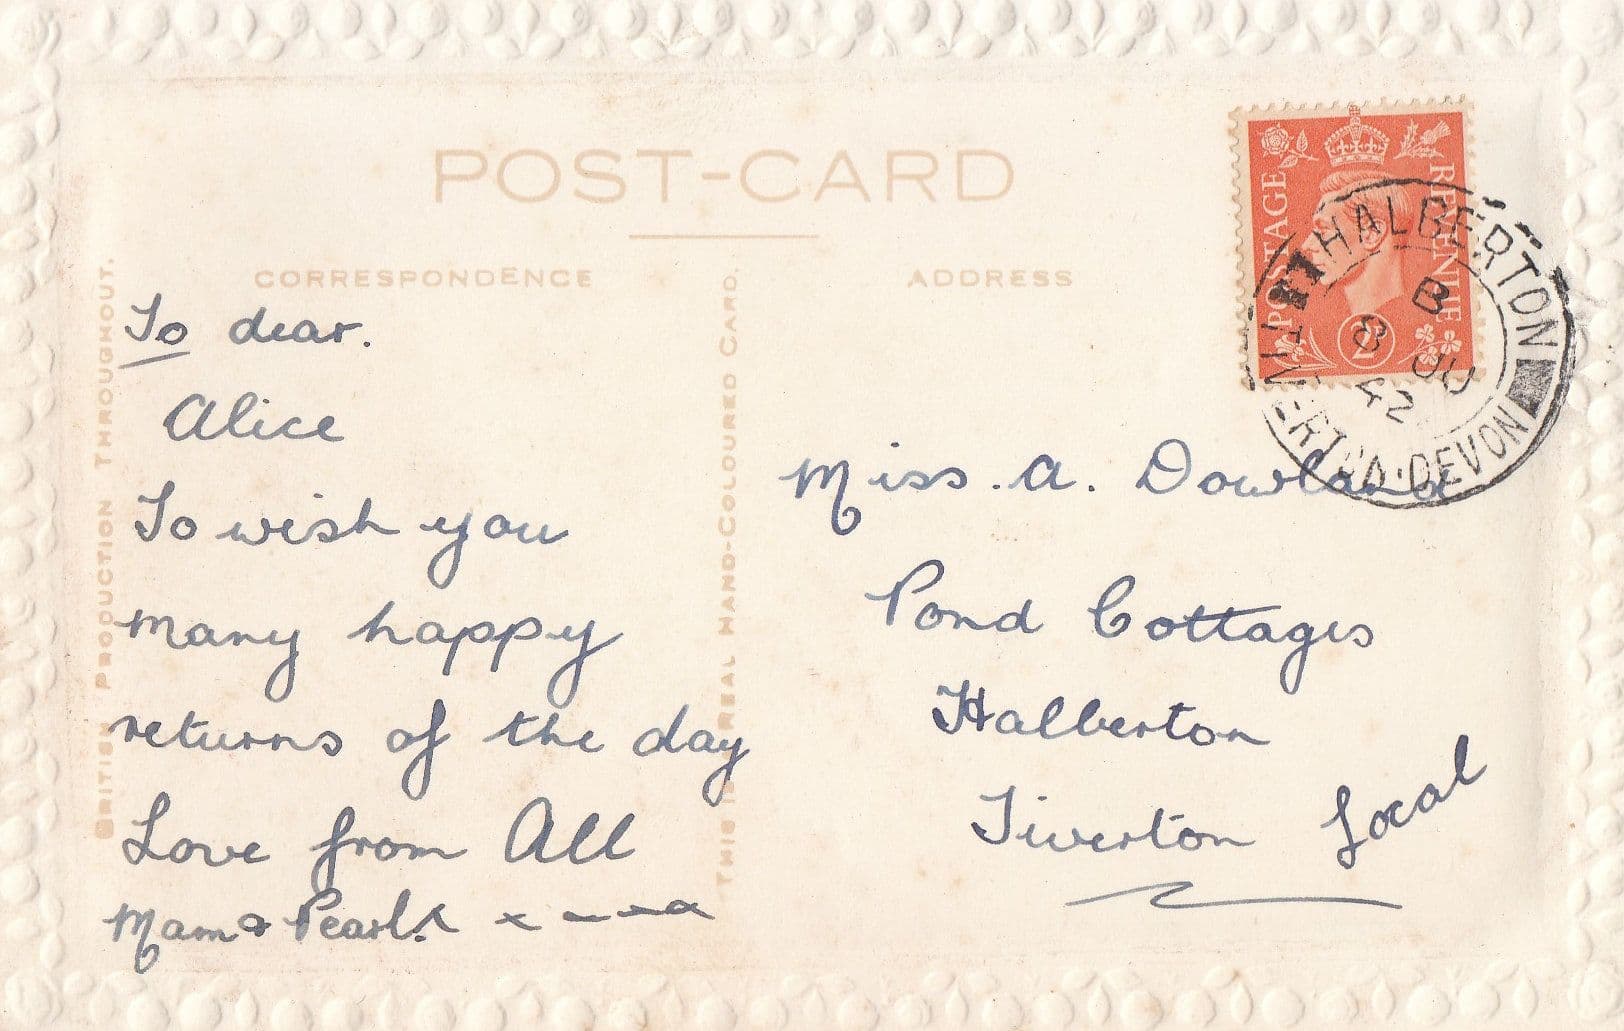 POST-CARD
CORRESPONDENCE
ADDRESS
BRITISH PRODUCTION THROUGHOUT.
THIS IS REAL HAND-COLOURED CARD.
POSTAGE
REVENUE
2
HALBERTON
TIVERTON·DEVON
B
8 JU
42
To dear.
Alice
To wish you
many happy
returns of the day
Love from All
Mam & Pearl. x x
Miss. A. Dowland
Pond Cottages
Halberton
Tiverton Local